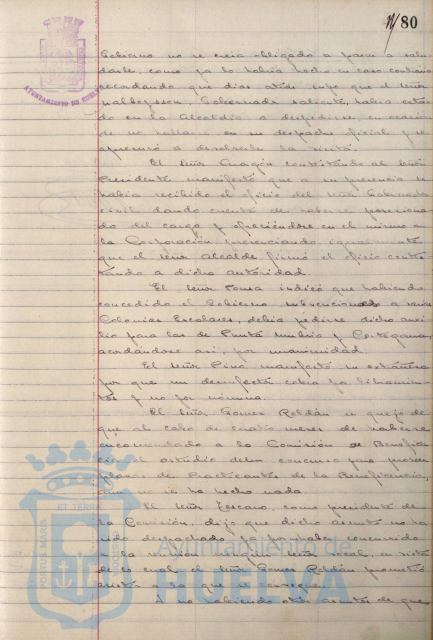 80
AYUNTAMIENTO DE HUELVA
Gobierno no se creia obligado a pasar a salu-
darle, como ya lo habia hecho en caso contrario
recordando que dias atrás supo que el Señor
Gobernador saliente, habia esta-
do en la Alcaldia a despedirse, en ocasión
de no hallarse en su despacho oficial, y se
apresuró a devolverle la visita.
El Señor Aragón contestando al Señor
Presidente manifestó que a su presencia se
habia recibido el oficio del Señor Gobernador
civil dando cuenta de haberse posesiona-
do del cargo y ofreciéndose en el mismo a
la Corporación presenciando igualmente
que el Señor Alcalde firmó el oficio contes-
tando a dicha autoridad.
El Señor indicó que habiendo
concedido el Gobierno subvenciones a varias
Colonias Escolares, debia pedirse dicho auxi-
lio para las de Punta Umbria y Cortegana,
acordándose asi, por unanimidad.
El Señor Pino manifestó su extrañeza
por que un desinfector cobra por libramien-
tos y no por nómina.
El Señor Gomez Roldán se quejó de
que al cabo de cuatro meses de haberse
encomendado a la Comisión de Beneficen-
cia el estudio de un concurso para proveer
plazas de Practicantes de la Beneficencia,
aun no se ha hecho nada.
El Señor Tercano, como presidente de
la Comisión, dijo que dicho asunto no ha
sido despachado ya por no haber concurrido
a la reunion mas que un Señor vocal, en vista
de lo cual el Señor Gomez Roldán prometió
asistir a la que se convoque.
Y no habiendo otros asuntos de que
PORTUS MARIS ET TERRAE
Ayuntamiento de
HUELVA